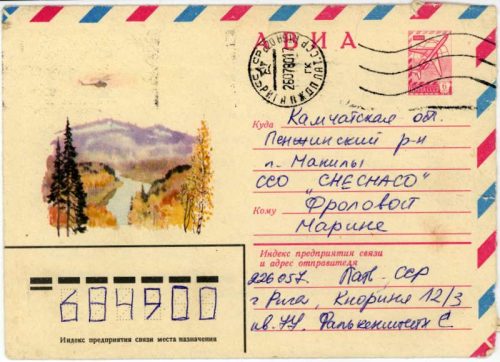 АВИА
260780 17
Куда Камчатская об.
Пенжинский р-н
п. Манилы
ССО "СНЕСНАСО"
Кому Фроловой
Марине
Индекс предприятия связи
и адрес отправителя
226057. Латв. ССР
г Рига, 12/3
кв. 77.
684900
Индекс предприятия связи места назначения